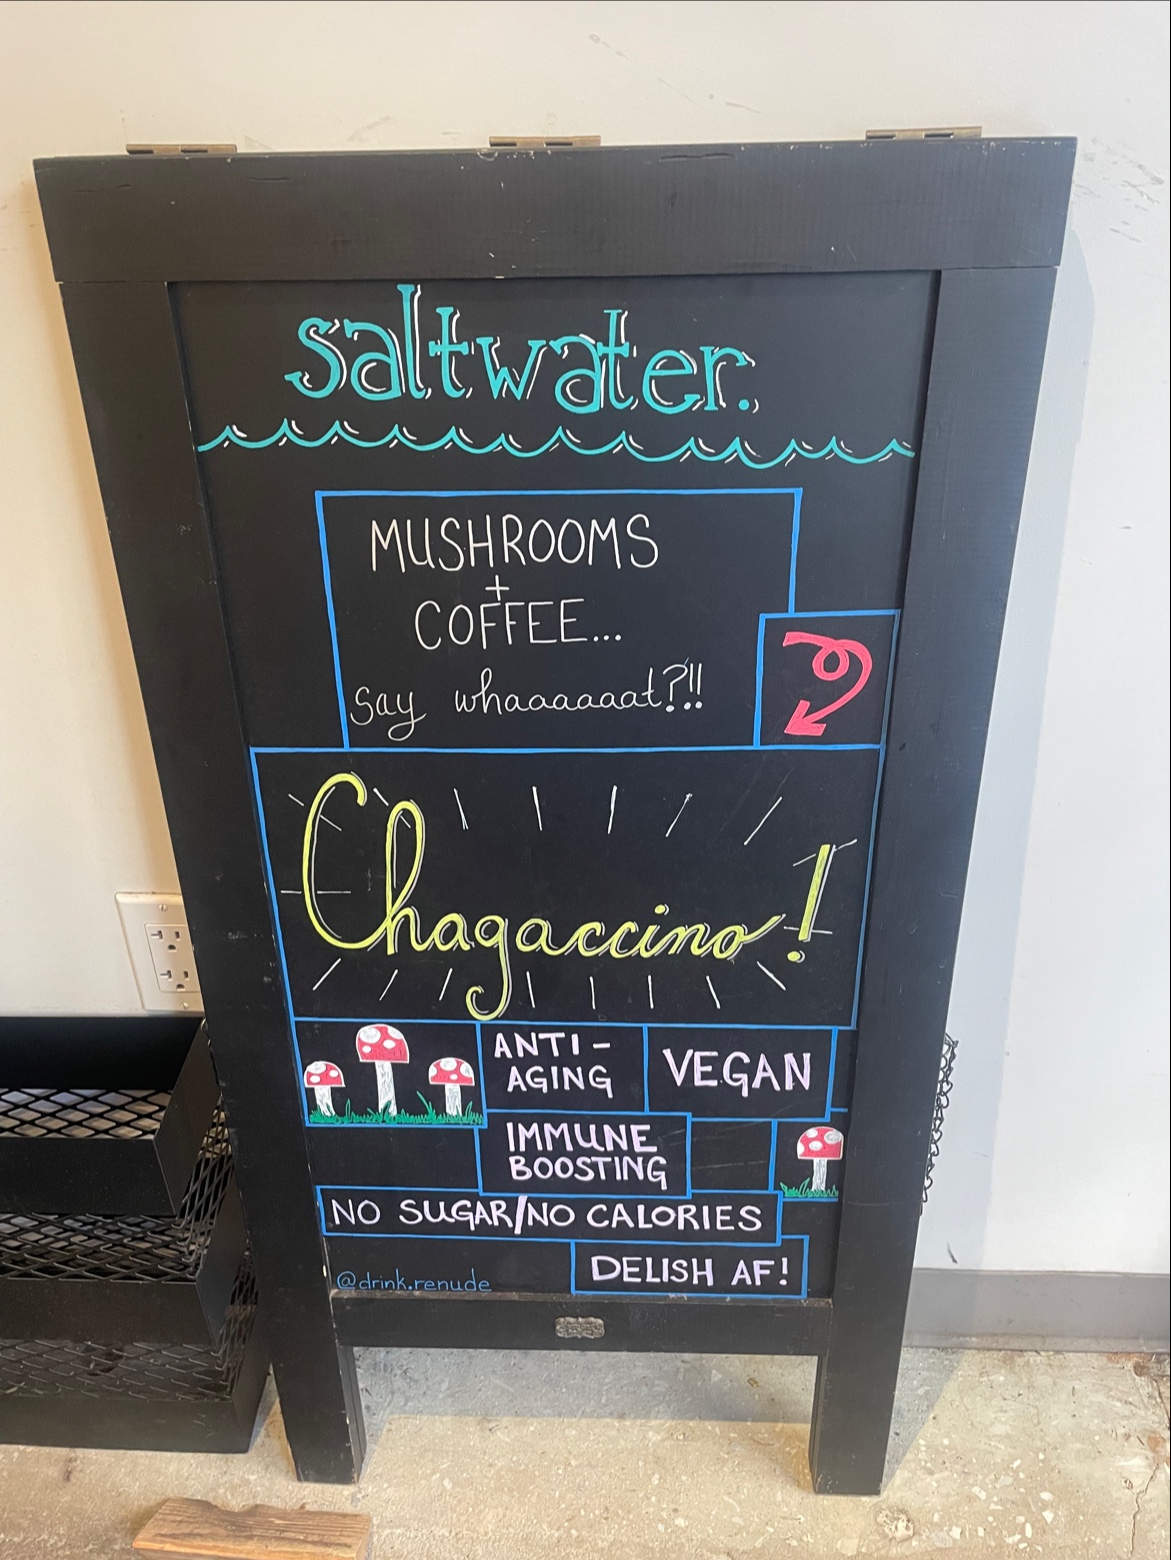 saltwater.
MUSHROOMS
+
COFFEE...
say whaaaaaat?!!
Chagaccino!
ANTI-
AGING
VEGAN
IMMUNE
BOOSTING
NO SUGAR/NO CALORIES
DELISH AF!
@drink.renude